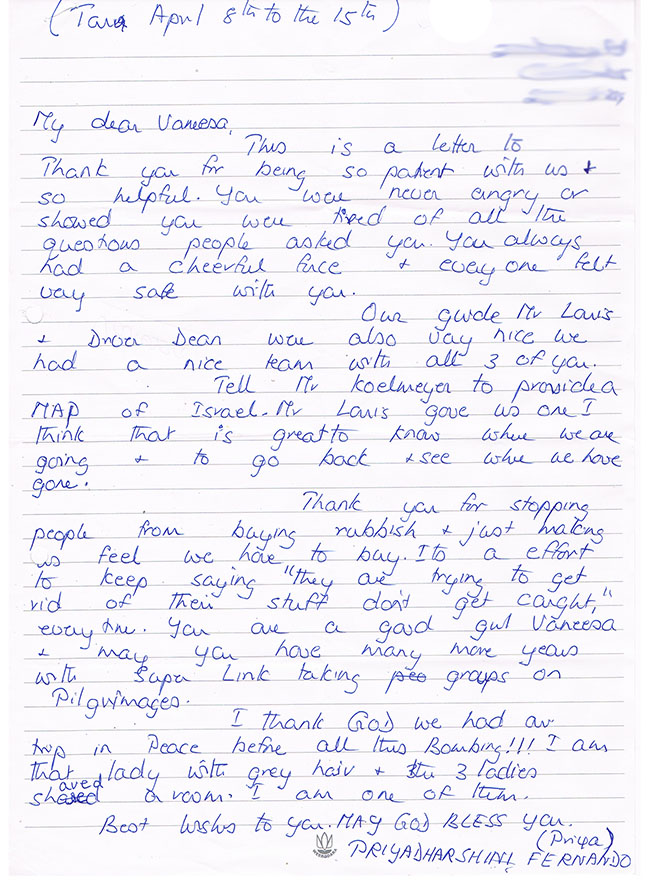 (Tara April 8th to the 15th)
My dear Vaneesa,
This is a letter to
Thank you for being so patient with us +
so helpful. You were never angry or
showed you were tired of all the
questions people asked you. You always
had a cheerful face + every one felt
very safe with you.
Our guide Mr Louis
+ Driver Dean were also very nice we
had a nice team with all 3 of you.
Tell Mr Koelmeyer to provide a
MAP of Israel - Mr Louis gave us one I
think that is great to know where we are
going + to go back + see where we have
gone.
Thank you for stopping
people from buying rubbish + just making
us feel we have to buy. Its a effort
to keep saying "they are trying to get
rid of their stuff don't get caught,"
every time. You are a good girl Vaneesa
+ may you have many more years
with Supa Link taking groups on
Pilgrimages.
I thank GOD we had our
trip in Peace before all this Bombing!!! I am
that lady with grey hair + the 3 ladies
shared a room. I am one of them.
Best wishes to you. MAY GOD BLESS YOU.
(Priya)
PRIYADHARSHINI FERNANDO